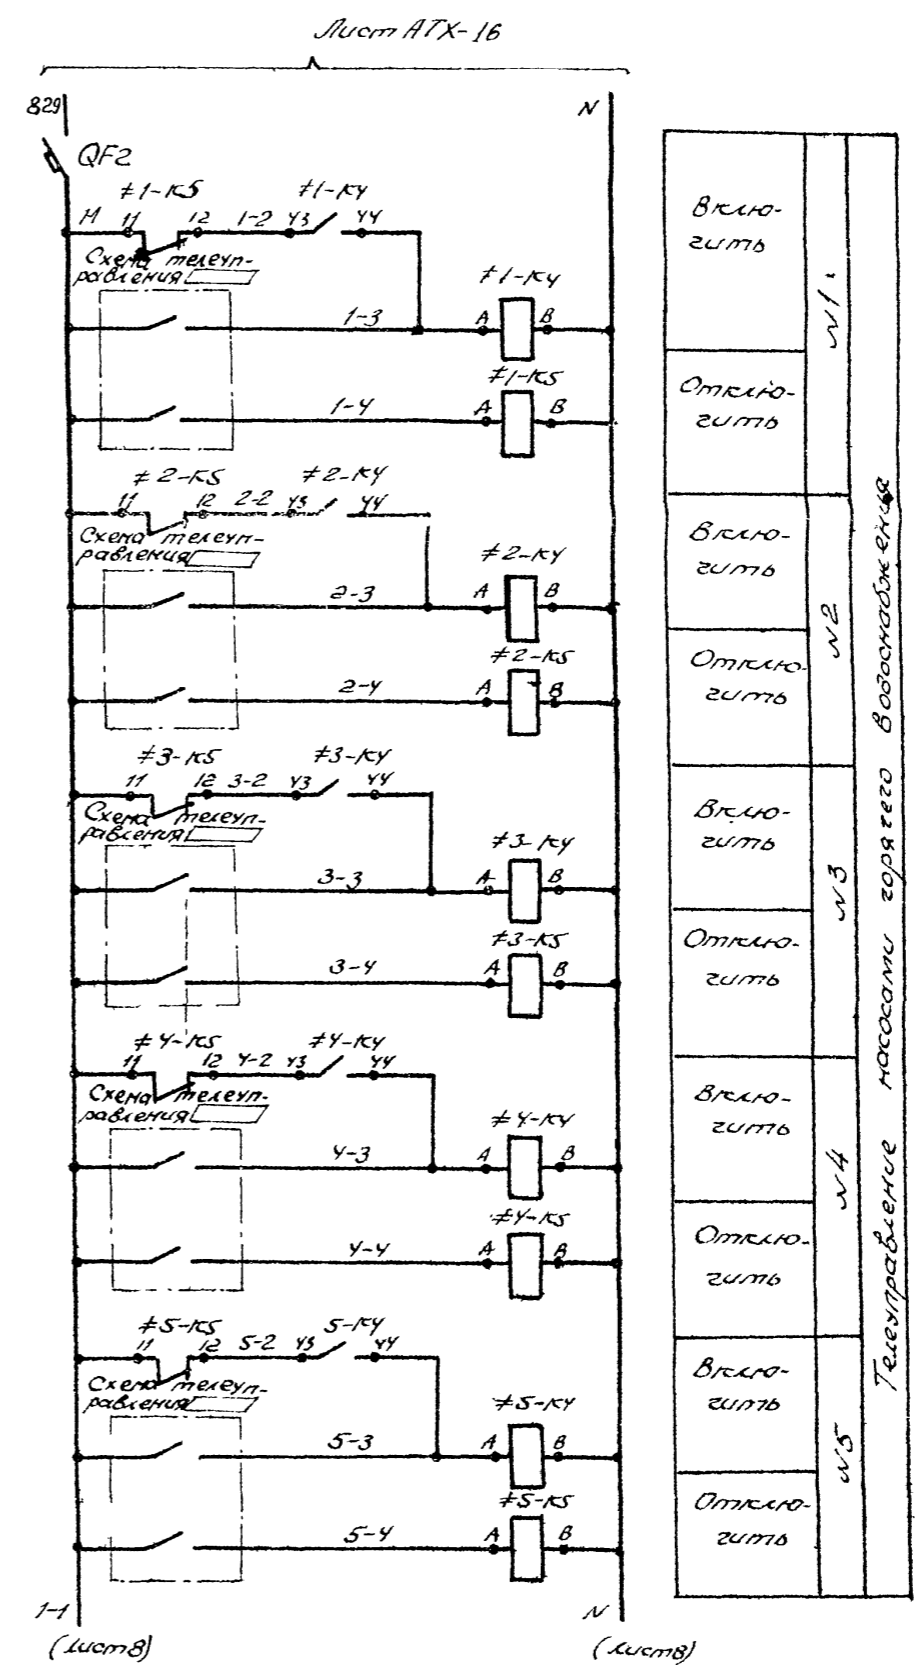 Лист АТХ-16
829
N
QF2
≠1-К5
≠1-К4
М
11
12
1-2
43
44
Схема телеуп-
равления
≠1-К4
1-3
А
В
≠1-К5
1-4
А
В
≠2-К5
≠2-К4
11
12
2-2
43
44
Схема телеуп-
равления
≠2-К4
2-3
А
В
≠2-К5
2-4
А
В
≠3-К5
≠3-К4
11
12
3-2
43
44
Схема телеуп-
равления
≠3-К4
3-3
А
В
≠3-К5
3-4
А
В
≠4-К5
≠4-К4
11
12
4-2
43
44
Схема телеуп-
равления
≠4-К4
4-3
А
В
≠4-К5
4-4
А
В
≠5-К5
5-К4
11
12
5-2
43
44
Схема телеуп-
равления
≠5-К4
5-3
А
В
≠5-К5
5-4
А
В
1-1
N
(лист8)
(лист8)
Вклю-
чить
Отклю-
чить
N1
Вклю-
чить
Отклю-
чить
N2
Вклю-
чить
Отклю-
чить
N3
Вклю-
чить
Отклю-
чить
N4
Вклю-
чить
Отклю-
чить
N5
Телеуправление насосами горячего водоснабжения